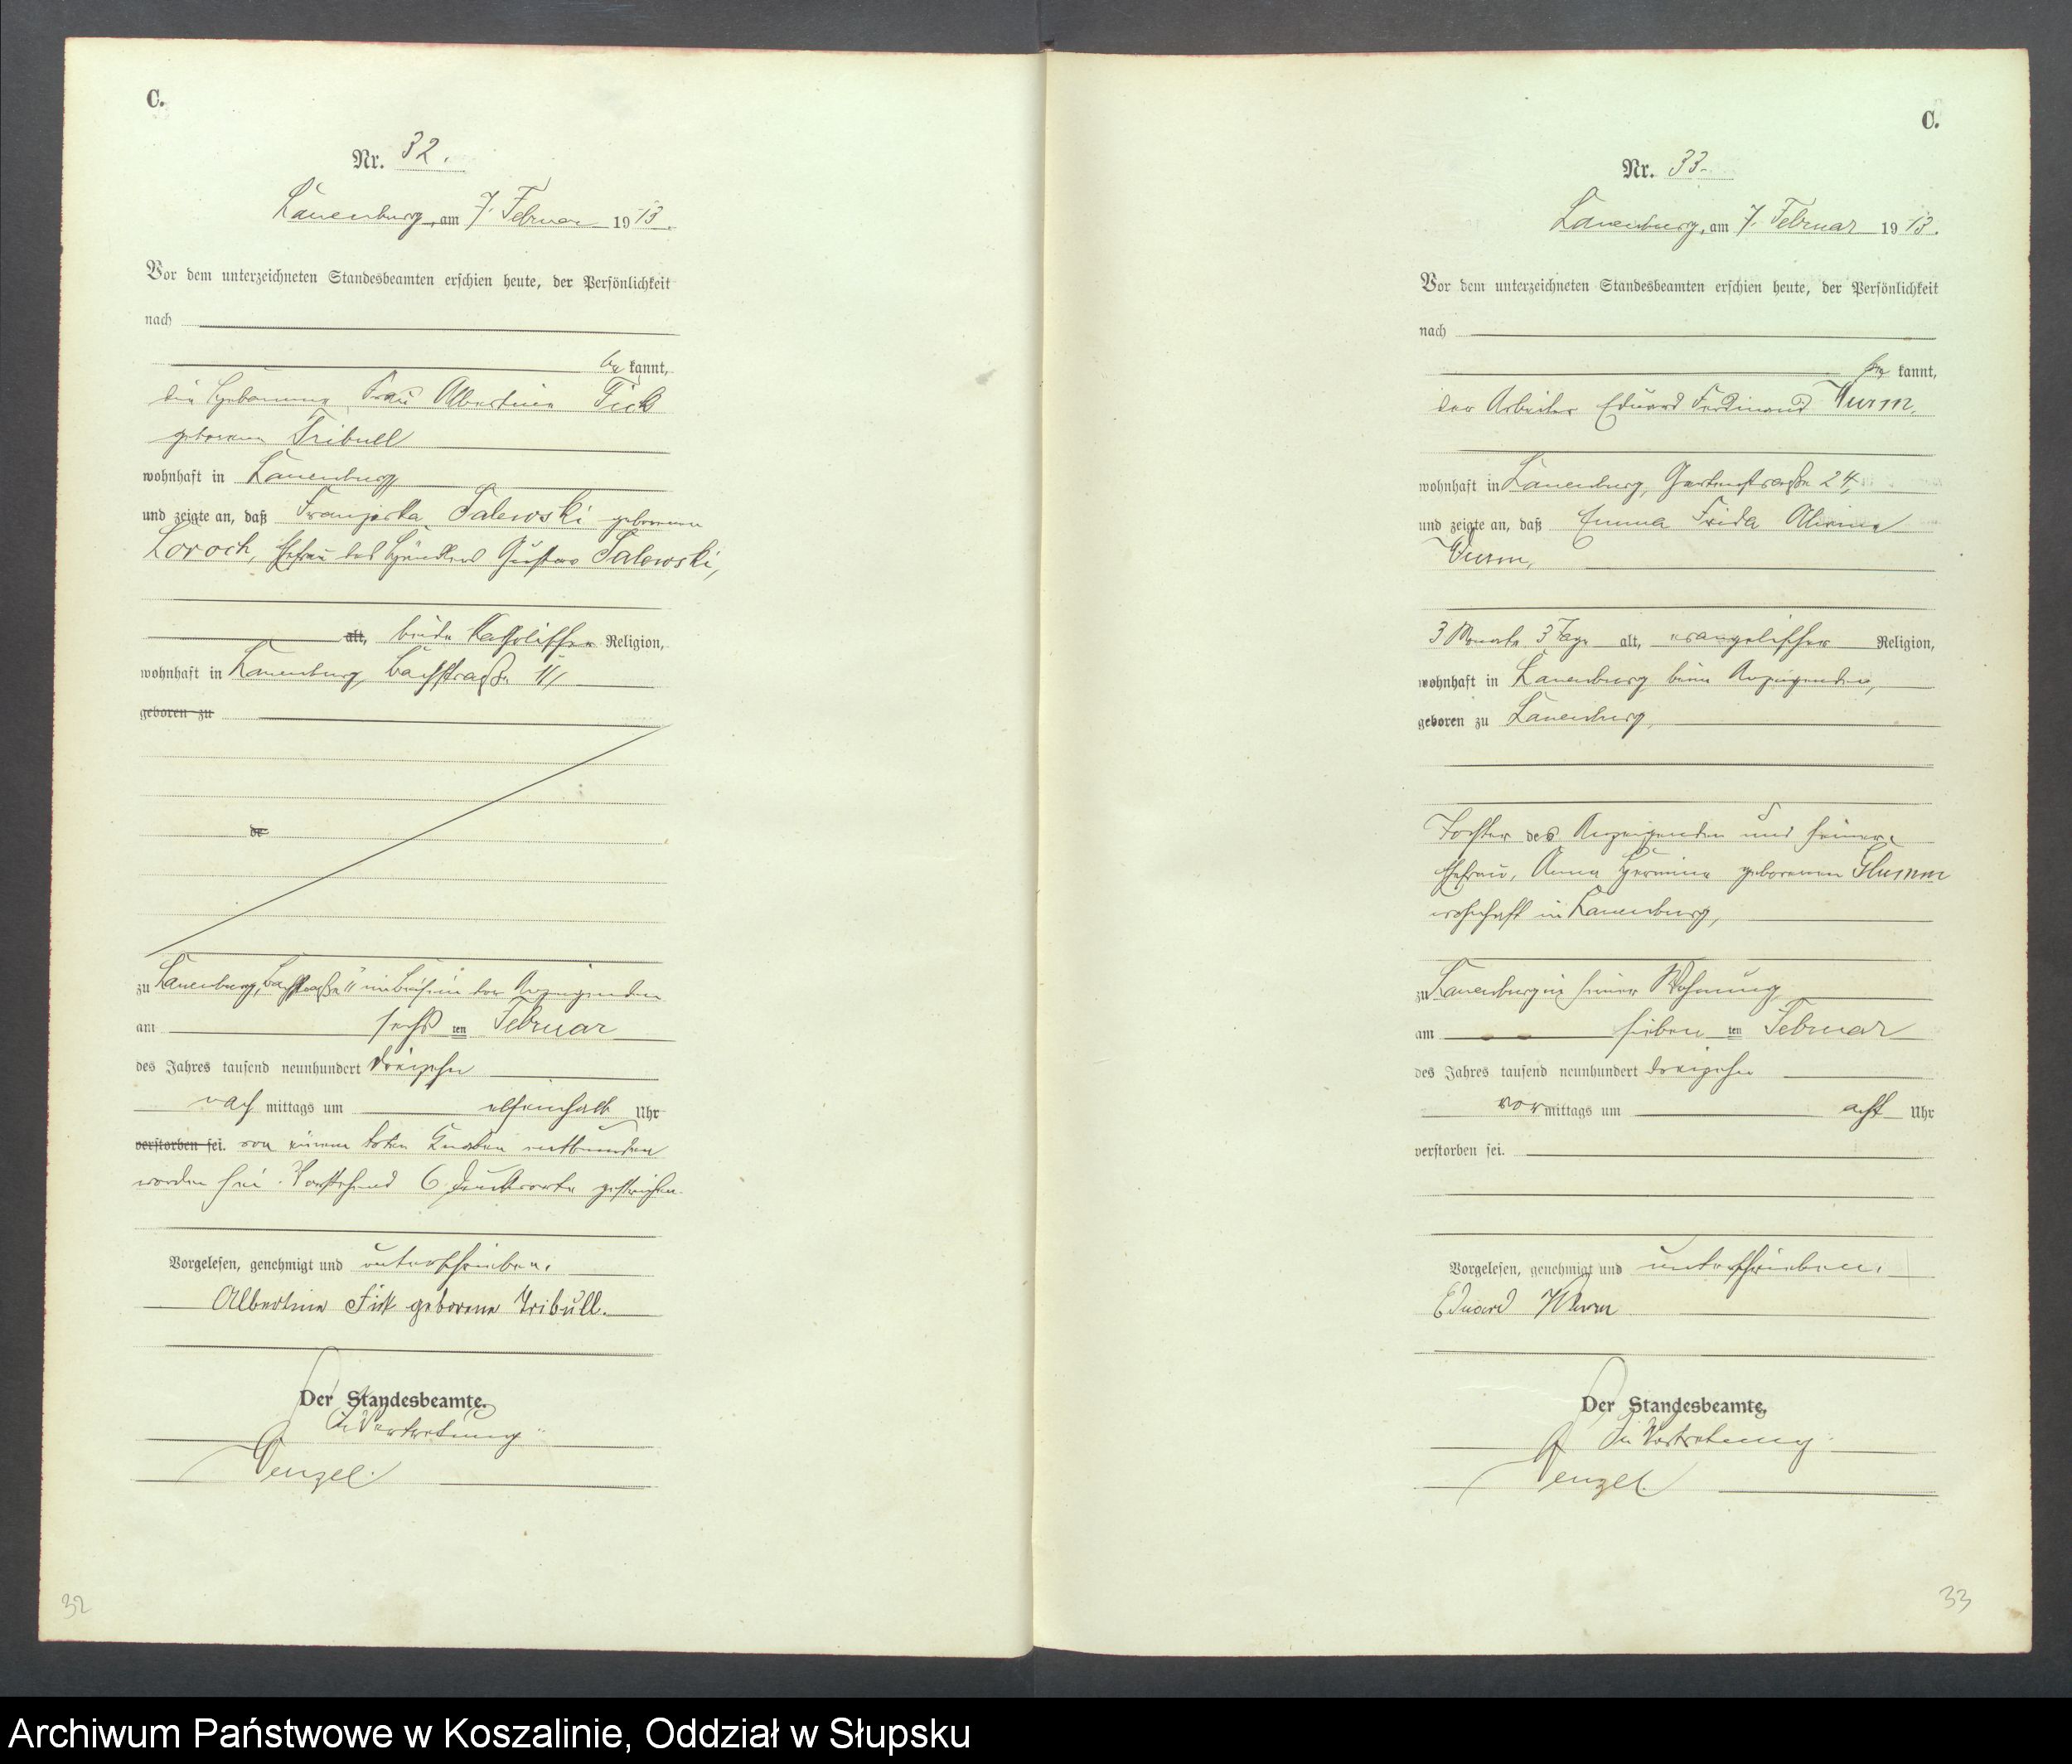 C.
Nr. 32.
Lauenburg, am 7. Februar 1913.
Vor dem unterzeichneten Standesbeamten erschien heute, der Persönlichkeit
nach
be kannt,
die Hebamme Frau Albertine Fick
geborene Tribull
wohnhaft in Lauenburg
und zeigte an, daß Franziska Salewski geborene
Loroch, Ehefrau des Händlers Gustav Salewski,
alt, beide katholischer Religion,
wohnhaft in Lauenburg, Bachstraße 11,
geboren zu
de
zu Lauenburg, Bachstraße 11 in Beisein der Anzeigenden
am sechs ten Februar
des Jahres tausend neunhundert dreizehn
nach mittags um elfeinhalb Uhr
verstorben sei. von einem toten Knaben entbunden
worden sei. Vorstehend 6 Druckworte gestrichen.
Vorgelesen, genehmigt und unterschrieben.
Albertine Fick geborene Tribull.
Der Standesbeamte.
In Vertretung
Wenzel.
32
C.
Nr. 33.
Lauenburg, am 7. Februar 1913.
Vor dem unterzeichneten Standesbeamten erschien heute, der Persönlichkeit
nach
be kannt,
der Arbeiter Eduard Ferdinand Wurm,
wohnhaft in Lauenburg, Gartenstraße 24,
und zeigte an, daß Emma Frida
Wurm,
3 Monate 3 Tage alt, evangelischer Religion,
wohnhaft in Lauenburg beim Anzeigenden,
geboren zu Lauenburg,
Tochter des Anzeigenden und seiner
Ehefrau, Anna Hermine geborenen Glumm
wohnhaft in Lauenburg,
zu Lauenburg in seiner Wohnung
am sieben ten Februar
des Jahres tausend neunhundert dreizehn
vor mittags um acht Uhr
verstorben sei.
Vorgelesen, genehmigt und unterschrieben.
Eduard Wurm
Der Standesbeamte.
In Vertretung
Wenzel.
33
Archiwum Państwowe w Koszalinie, Oddział w Słupsku